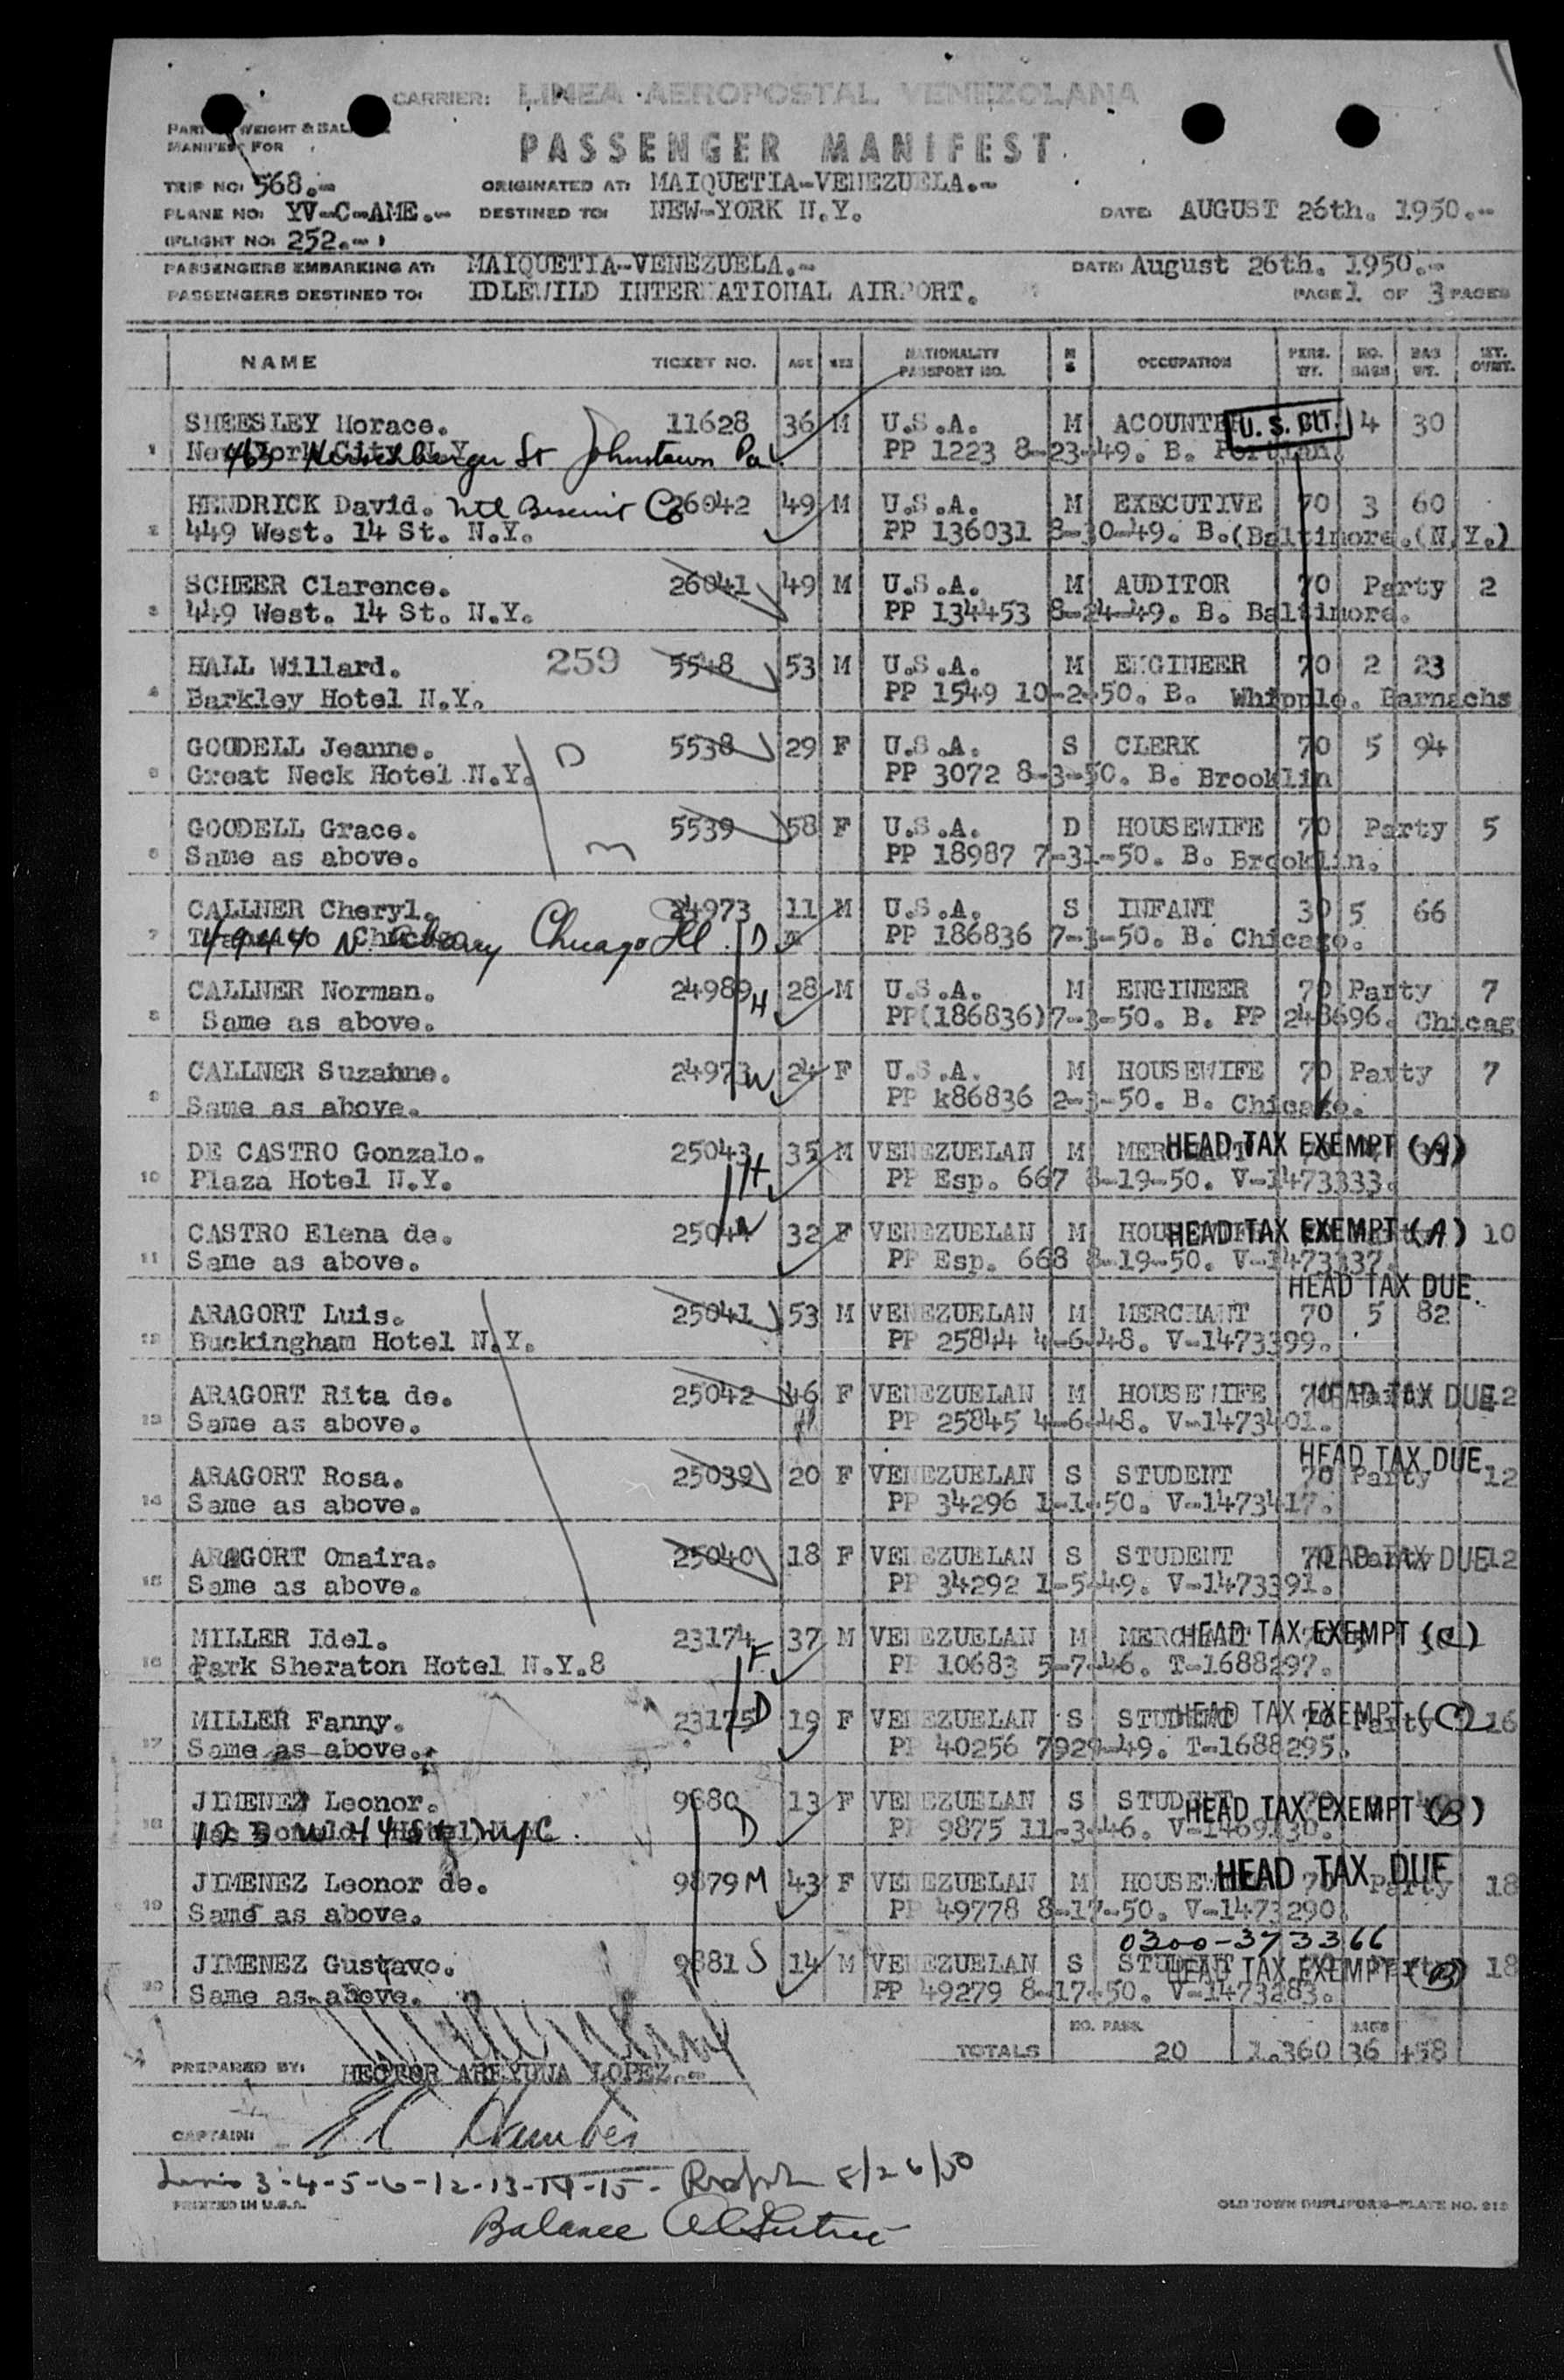 CARRIER: LINEA AEROPOSTAL VENEZOLANA
PART WEIGHT & BAL
MANIFEST FOR
PASSENGER MANIFEST
TRIP NO: 568.- ORIGINATED AT: MAIQUETIA-VENEZUELA.-
PLANE NO: YV-C-AME.- DESTINED TO: NEW-YORK N.Y. DATE: AUGUST 26th. 1950.-
(FLIGHT NO: 252.- )
PASSENGERS EMBARKING AT: MAIQUETIA-VENEZUELA.- DATE: August 26th. 1950.-
PASSENGERS DESTINED TO: IDLEWILD INTERNATIONAL AIRPORT. PAGE 1 OF 3 PAGES
NAME TICKET NO. AGE SEX NATIONALITY PASSPORT NO. M S OCCUPATION PERS. WT. NO. BAGS BAG WT.
1 SHEESLEY Horace. 11628 36 M U.S.A. M U.S. CIT. 4 30
St Johnstown Pa PP 1223 8-23-49. B.
2 HENDRICK David. Ntl Biscuit Co 26042 49 M U.S.A. M EXECUTIVE 70 3 60
449 West. 14 St. N.Y. PP 136031 8-30-49. B. (Baltimore.(N.Y.)
3 SCHEER Clarence. 26041 49 M U.S.A. M AUDITOR 70 Party 2
449 West. 14 St. N.Y. PP 134453 8-24-49. B. Baltimore.
4 HALL Willard. 259 5548 53 M U.S.A. M ENGINEER 70 2 23
Barkley Hotel N.Y. PP 1549 10-2-50. B. Whipple. Barnachs
5 GOODELL Jeanne. D 5538 29 F U.S.A. S CLERK 70 5 94
Great Neck Hotel N.Y. PP 3072 8-3-50. B. Brooklin
6 GOODELL Grace. M 5539 58 F U.S.A. D HOUSEWIFE 70 Party 5
Same as above. PP 18987 7-31-50. B. Brooklin.
7 CALLNER Cheryl. 24973 11 M U.S.A. S INFANT 30 5 66
4944 N Chicago Ill. D PP 186836 7-3-50. B. Chicago.
8 CALLNER Norman. 24989 H 28 M U.S.A. M ENGINEER 70 Party 7
Same as above. PP(186836)7-3-50. B. PP 248696. Chicag
9 CALLNER Suzanne. 24973 W 24 F U.S.A. M HOUSEWIFE 70 Party 7
Same as above. PP k86836 2-3-50. B. Chicago.
10 DE CASTRO Gonzalo. 25043 H 35 M VENEZUELAN M HEAD TAX EXEMPT (A)
Plaza Hotel N.Y. PP Esp. 667 8-19-50. V-1473333.
11 CASTRO Elena de. 25044 W 32 F VENEZUELAN M HEAD TAX EXEMPT (A) 10
Same as above. PP Esp. 668 8-19-50. V-1473337.
HEAD TAX DUE.
12 ARAGORT Luis. 25041 53 M VENEZUELAN M MERCHANT 70 5 82
Buckingham Hotel N.Y. PP 25844 4-6-48. V-1473399.
13 ARAGORT Rita de. 25042 46 F VENEZUELAN M HOUSEWIFE 70 HEAD TAX DUE 12
Same as above. PP 25845 4-6-48. V-1473401.
HEAD TAX DUE
14 ARAGORT Rosa. 25039 20 F VENEZUELAN S STUDENT 70 Party 12
Same as above. PP 34296 1-1-50. V-1473417.
15 ARAGORT Omaira. 25040 18 F VENEZUELAN S STUDENT 70 HEAD TAX DUE 12
Same as above. PP 34292 1-5-49. V-1473391.
16 MILLER Idel. 23174 F 37 M VENEZUELAN M MERCHANT HEAD TAX EXEMPT (C)
Park Sheraton Hotel N.Y.8 PP 10683 5-7-46. T-1688297.
17 MILLER Fanny. 23175 D 19 F VENEZUELAN S STUDENT HEAD TAX EXEMPT (C) 16
Same as above. PP 40256 7929-49. T-1688295.
18 JIMENEZ Leonor. 9880 13 F VENEZUELAN S STUDENT HEAD TAX EXEMPT (B)
D PP 9875 11-3-46.
19 JIMENEZ Leonor de. 9879 M 43 F VENEZUELAN M HEAD TAX DUE Party 18
Same as above. PP 49778 8-17-50. V-1473290.
0300-373366
20 JIMENEZ Gustavo. 9881 S 14 M VENEZUELAN S STUDENT HEAD TAX EXEMPT (B) 18
Same as above. PP 49279 8-17-50. V-1473283.
TOTALS NO. PASS. 20 1.360 BAGS 36
PREPARED BY: HECTOR LOPEZ.-
CAPTAIN:
3-4-5-6-12-13-14-15- 8/26/50
PRINTED IN U.S.A. OLD TOWN
Balance